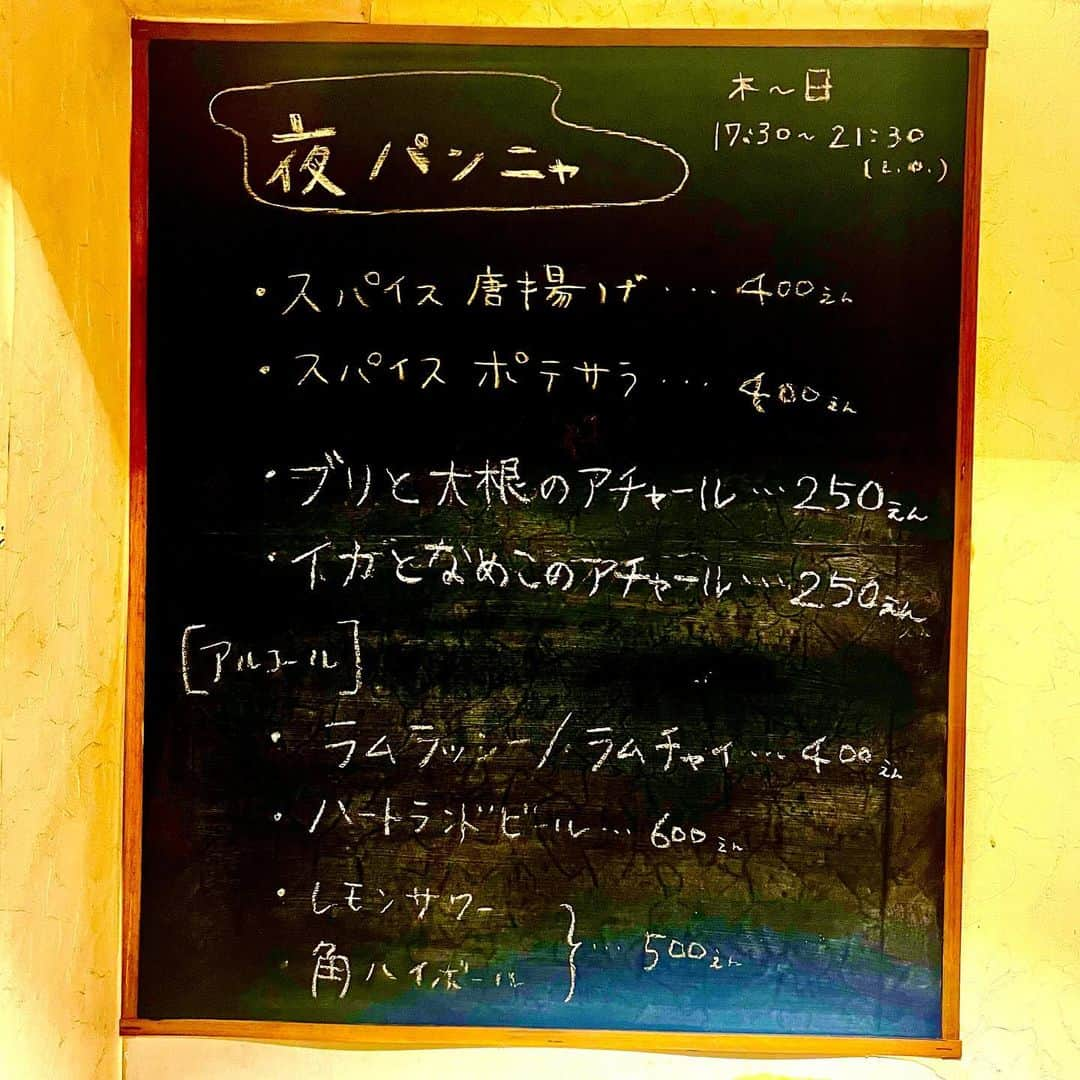 夜パンニャ
木〜日
17:30〜21:30
(L.O.)
・スパイス唐揚げ…400えん
・スパイスポテサラ…400えん
・ブリと大根のアチャール…250えん
・イカとなめこのアチャール…250えん
[アルコール]
・ラムラッシー/ラムチャイ…400えん
・ハートランドビール…600えん
・レモンサワー
・角ハイボール }…500えん